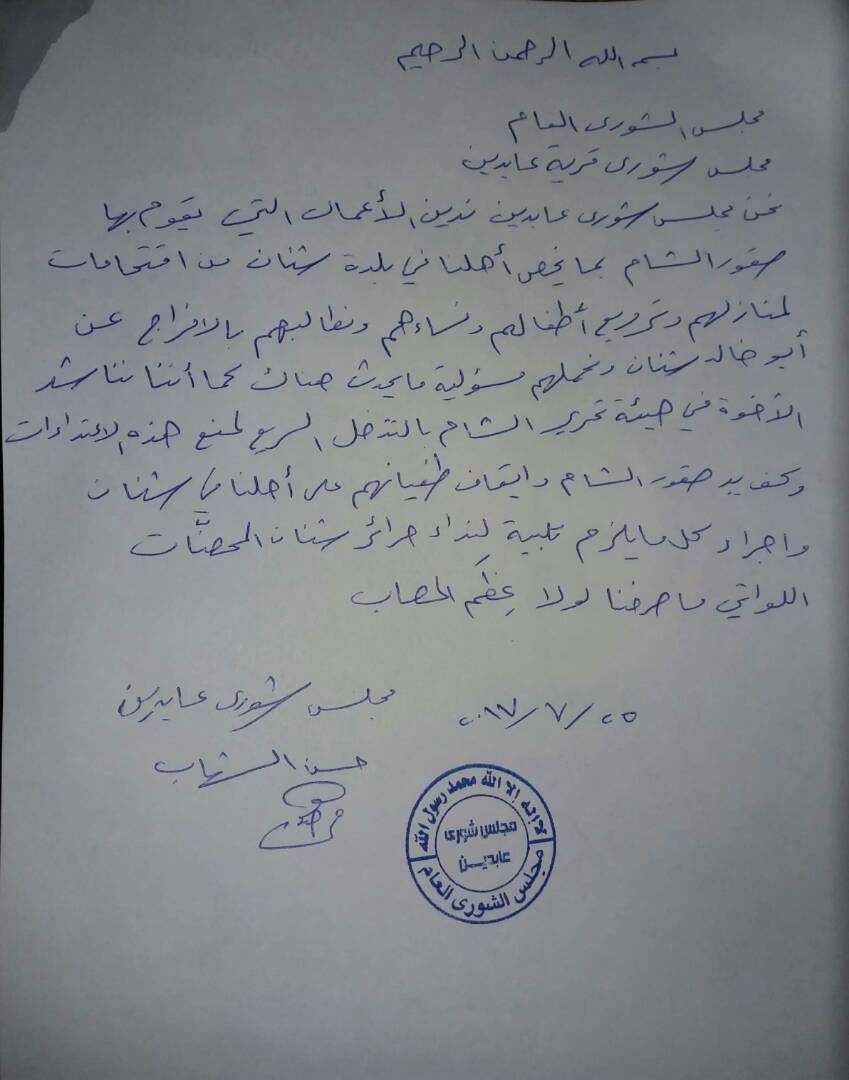 بسم الله الرحمن الرحيم
مجلس الشورى العام
مجلس شورى قرية عابدين
نحن مجلس شورى عابدين ندين الأعمال التي يقوم بها
صقور الشام بما يخص أهلنا في بلدة شنان من اقتحامات
لمنازلهم وترويع أطفالهم ونساءهم ونطالبهم بالافراج عن
أبو خالد شنان ونحملهم مسؤولية مايحدث هناك كما أننا نناشد
الأخوة في هيئة تحرير الشام بالتدخل السريع لمنع هذه الاعتداءات
وكف يد صقور الشام وايقاف طغيانهم على أهلنا في شنان
واجراء كل مايلزم تلبية لِنداء حرائر شنان المحصنَّات
اللواتي ما صرخنا لولا عِظَم المصاب
مجلس شورى عابدين
٢٠١٧/٧/٢٥
حسن الشهاب
لا إله إلا الله محمد رسول الله
مجلس شورى
عابديــن
مجلس الشورى العام